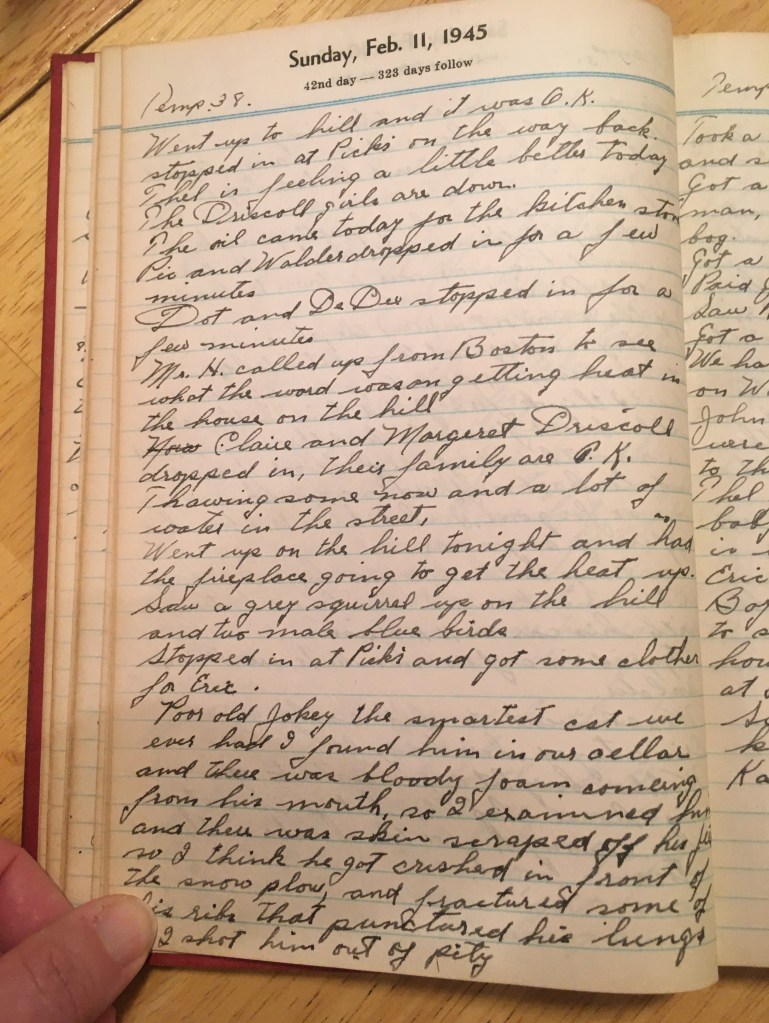 Sunday, Feb. 11, 1945
42nd day — 323 days follow
Temp. 38.
Went up to hill and it was O.K.
stopped in at Pick's on the way back.
Thel is feeling a little better today
The Driscoll girls are down.
The oil came today for the kitchen
Pic and Walder dropped in for a few
minutes
Dot and DeDee stopped in for a
few minutes
Mr. H. called up from Boston to see
what the word was on getting heat in
the house on the hill
Claire and Margaret Driscoll
dropped in, their family are O.K.
Thawing some now and a lot of
water in the street,
Went up on the hill tonight and had
the fireplace going to get the heat up.
Saw a grey squirrel up on the hill
and two male blue birds
Stopped in at Pick's and got some clothes
for Eric.
Poor old Jokey the smartest cat we
ever had I found him in our cellar
and there was bloody foam comeing
from his mouth, so I examined
and there was skin scraped off his
so I think he got crushed in front of
the snow plow, and fractured some of
his ribs that punctured his lungs
I shot him out of pity
Temp
Took a
and s
Got a
man,
bog.
Got a
Paid
Saw
Got a
We ha
on W
John
were
to th
Thel
bab
in
Eric
to s
how
at
Ka